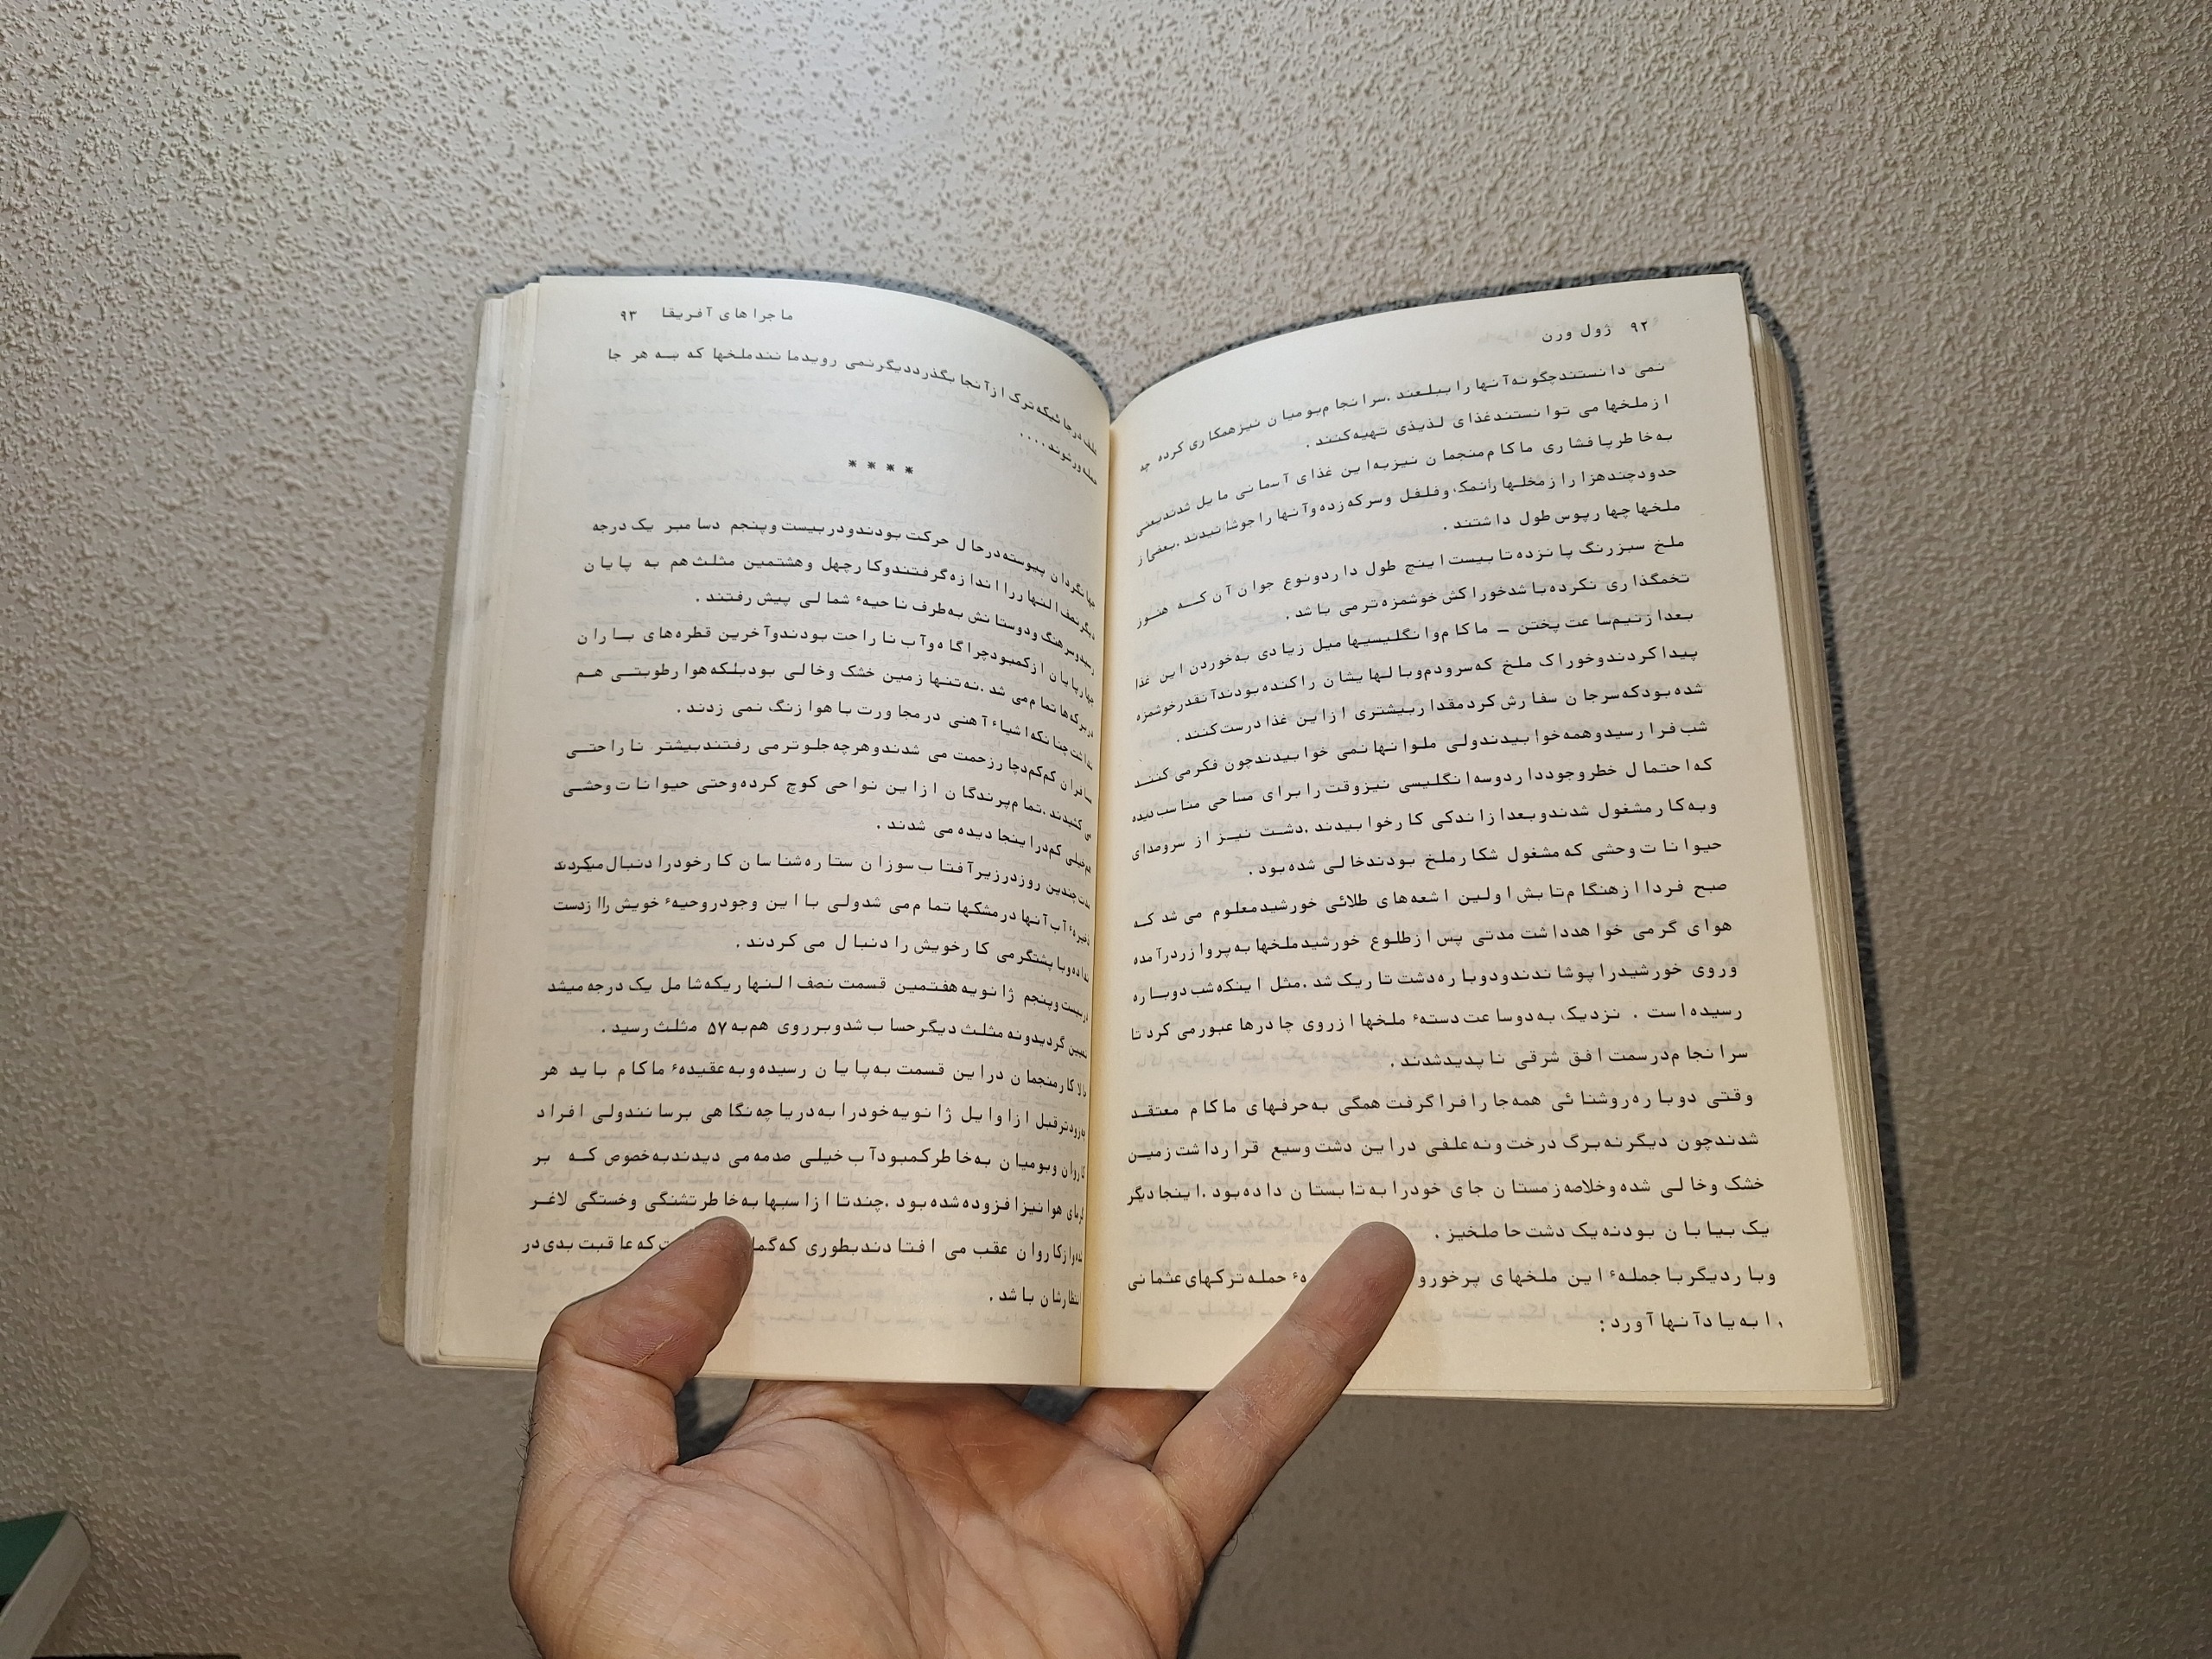 ۹۲ ژول ورن
نمی دانستند چگونه آنها را ببلعند . سرانجام بومیان نیز همکاری کرده چه
از ملخها می توانستند غذای لذیذی تهیه کنند .
به خاطر پافشاری ماکام منجمان نیز به این غذای آسمانی مایل شدند یعنی
حدود چند هزار از مخلها را نمک و فلفل و سرکه زده و آنها را جوشانیدند . بعضی از
ملخها چهار پوس طول داشتند .
ملخ سبز رنگ پانزده تا بیست اینچ طول دارد و نوع جوان آن که هنوز
تخمگذاری نکرده باشد خوراکش خوشمزه تر می باشد .
بعد از نیم ساعت پختن – ماکام و انگلیسیها میل زیادی به خوردن این غذا
پیدا کردند و خوراک ملخ که سر و دم و بالهایشان را کنده بودند آنقدر خوشمزه
شده بود که سرجان سفارش کرد مقدار بیشتری از این غذا درست کنند .
شب فرا رسید و همه خوابیدند ولی ملوانها نمی خوابیدند چون فکر می کنند
که احتمال خطر وجود دارد و سه انگلیسی نیز وقت را برای مساحی مناسب دیده
و به کار مشغول شدند و بعد از اندکی کار خوابیدند . دشت نیز از سر و صدای
حیوانات وحشی که مشغول شکار ملخ بودند خالی شده بود .
صبح فردا از هنگام تابش اولین اشعه های طلائی خورشید معلوم می شد که
هوای گرمی خواهد داشت مدتی پس از طلوع خورشید ملخها به پرواز در آمده
و روی خورشید را پوشاندند و دوباره دشت تاریک شد . مثل اینکه شب دوباره
رسیده است . نزدیک به دو ساعت دستهٔ ملخها از روی چادرها عبور می کرد تا
سرانجام در سمت افق شرقی ناپدید شدند .
وقتی دوباره روشنائی همه جا را فرا گرفت همگی به حرفهای ماکام معتقد
شدند چون دیگر نه برگ درخت و نه علفی در این دشت وسیع قرار داشت زمین
خشک و خالی شده و خلاصه زمستان جای خود را به تابستان داده بود . اینجا دیگر
یک بیابان بود نه یک دشت حاصلخیز .
و بار دیگر با جملهٔ این ملخهای پرخور و حمله ترکهای عثمانی
را به یاد آنها آورد :
ماجراهای آفریقا ۹۳
علف در جائیکه ترک از آنجا بگذرد دیگر نمی روید مانند ملخها که به هر جا
حمله ور شوند ....
* * * *
جهانگردان پیوسته در حال حرکت بودند و در بیست و پنجم دسامبر یک درجه
دیگر نصف النهار را اندازه گرفتند و کار چهل و هشتمین مثلث هم به پایان
رسید و سرهنگ و دوستانش به طرف ناحیهٔ شمالی پیش رفتند .
چهارپایان از کمبود چراگاه و آب ناراحت بودند و آخرین قطره های باران
در برکه ها تمام می شد . نه تنها زمین خشک و خالی بود بلکه هوا رطوبتی هم
نداشت چنانکه اشیاء آهنی در مجاورت با هوا زنگ نمی زدند .
مسافران کم کم دچار زحمت می شدند و هر چه جلوتر می رفتند بیشتر ناراحتی
می کشیدند . تمام پرندگان از این نواحی کوچ کرده و حتی حیوانات وحشی
هم خیلی کم در اینجا دیده می شدند .
مدت چندین روز در زیر آفتاب سوزان ستاره شناسان کار خود را دنبال میکردند
ذخیرهٔ آب آنها در مشکها تمام می شد ولی با این وجود روحیهٔ خویش را از دست
نداده و با پشتگرمی کار خویش را دنبال می کردند .
در بیست و پنجم ژانویه هفتمین قسمت نصف النهار یکه شامل یک درجه میشد
تعیین گردید و نه مثلث دیگر حساب شد و بر روی هم به ۵۷ مثلث رسید .
حالا کار منجمان در این قسمت به پایان رسیده و به عقیدهٔ ماکام باید هر
چه زودتر قبل از اوایل ژانویه خود را به دریاچه نگاهی برسانند ولی افراد
کاروان و بومیان به خاطر کمبود آب خیلی صدمه می دیدند به خصوص که بر
گرمای هوا نیز افزوده شده بود . چند تا از اسبها به خاطر تشنگی و خستگی لاغر
شده و از کاروان عقب می افتادند بطوری که که عاقبت بدی در
انتظارشان باشد .